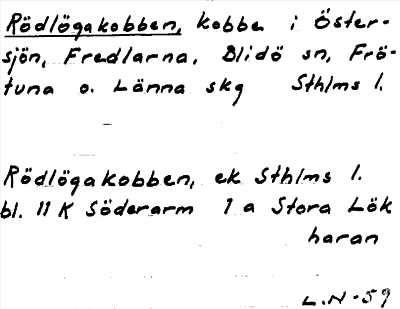 Rödlögakobben, kobbe i Öster-
sjön, Fredlarna, Blidö sn, Frö-
tuna o. Länna skg Sthlms l.
Rödlögakobben, ek Sthlms l.
bl. 11 K Söderarm 1 a Stora Lök
haran
L.N-59